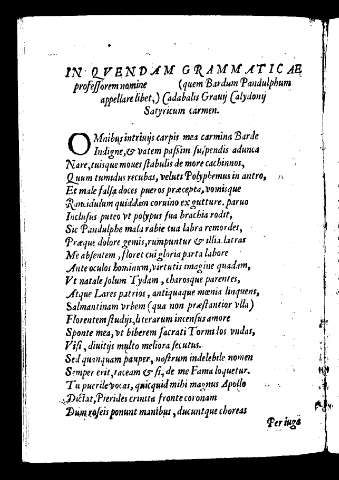 IN QVENDAM GRAMMATICAE
professorem nomine (quem Bardum Pandulphum
appellare libet,) Cadabalis Grauij Calydonij
Satyricum carmen.
OMnibus in triuijs carpis mea carmina Barde
Indigne, & vatem passim suspendis adunca
Nare, tuisque moues stabulis de more cachinnos,
Quum tumidus recubas, veluti Polyphemus in antro,
Et male falsa doces pueros præcepta, vomisque
Rancidulum quiddam coruino ex gutture. paruo
Inclusus puteo vt polypus sua brachia rodit,
Sic Pandulphe mala rabie tua labra remordes,
Præque dolore gemis, rumpuntur & illia latras
Me absentem, floret cui gloria parta labore
Ante oculos hominum, virtutis imagine quadam,
Vt natale solum Tydam, charosque parentes,
Atque Lares patrios, antiquaque mœnia linquens,
Salmantinam vrbem (qua non præstantior vlla)
Florentem studijs, literarum incensus amore
Sponte mea, vt biberem sacrati Tormis vndas,
Visi, diuitijs multo meliora secutus.
Sed quanquam pauper, nostrum indelebile nomen
Semper erit, taceam & si, de me Fama loquetur.
Tu puerile vocas, quicquid mihi magnus Apollo
Dictat, Pierides crinita fronte coronam
Dum roseis ponunt manibus, ducuntque choreas
Per iuga